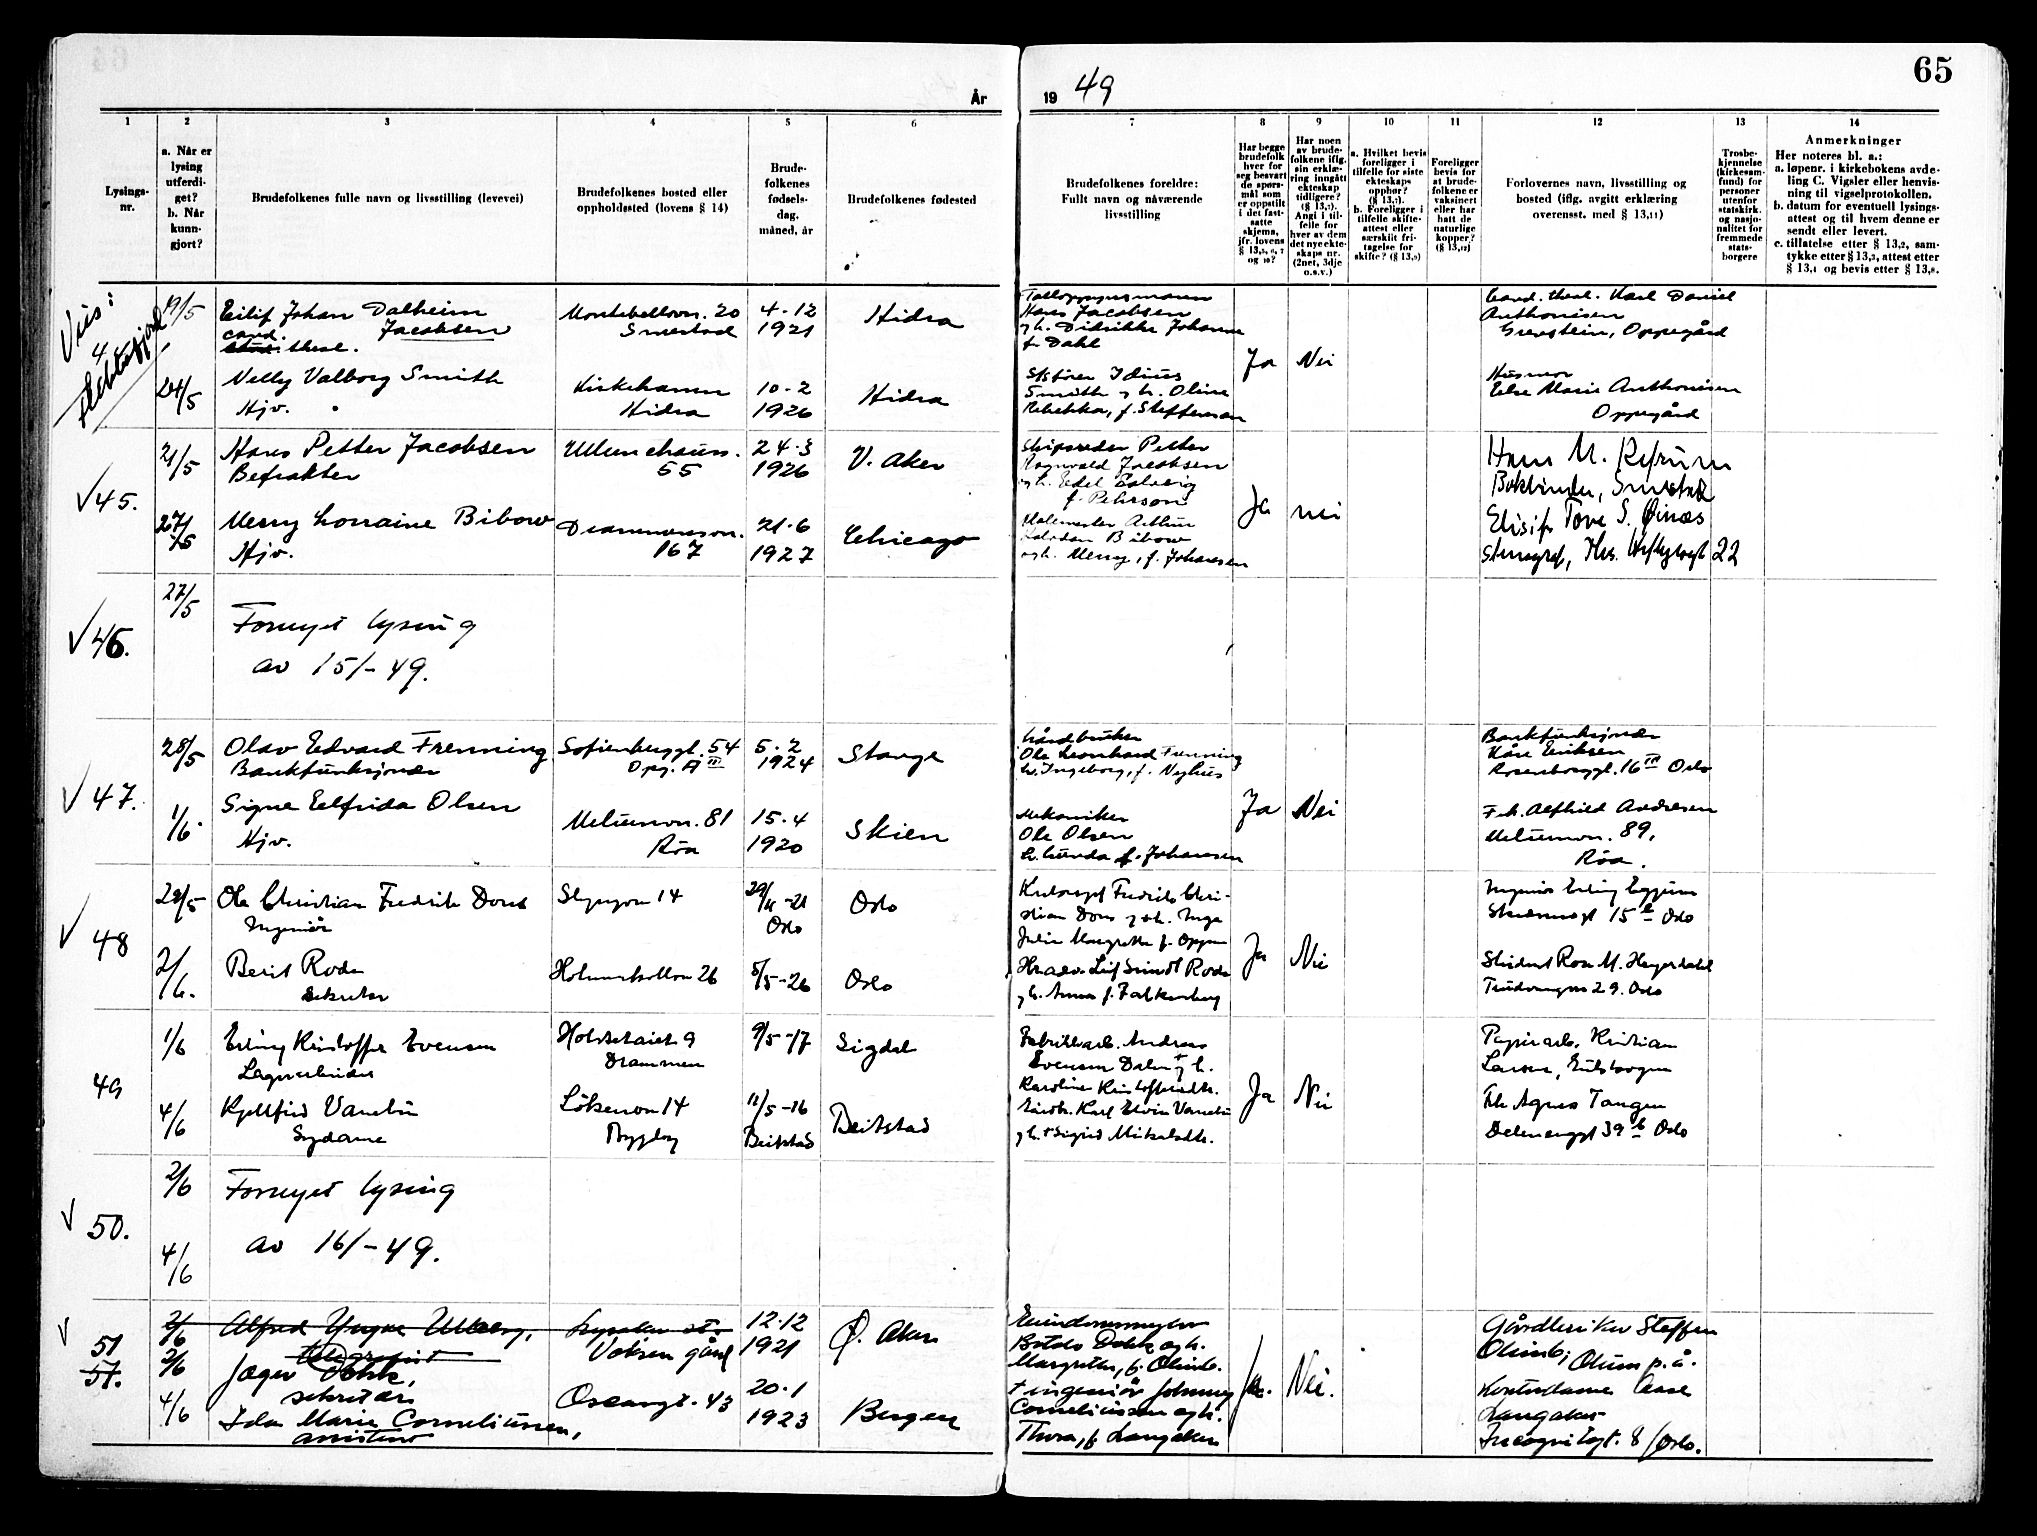 65
År
19 49
1
2
3
4
5
6
7
8
9
10
11
12
13
14
Lysings-
nr.
a. Når er
lysing
utferdi-
get?
b. Når
kunn-
gjort?
Brudefolkenes fulle navn og livsstilling (levevei)
Brudefolkenes bosted eller
oppholdssted (lovens § 14)
Brude-
folkenes
fødsels-
dag,
måned, år
Brudefolkenes fødested
Brudefolkenes foreldre:
Fullt navn og nåværende
livsstilling
Har begge
brudefolk
hver for
seg besvart
de spørs-
mål som
er oppstilt
i det fast-
satte
skjema,
jfr. lovens
§ 13,5, 6, 7
og 10?
Har noen
av brude-
folkene iflg.
sin erklæ-
ring inngått
ekteskap
tidligere?
(§ 13,7).
Angi i til-
felle for
hver av dem
det nye ekte-
skaps nr.
(2net, 3dje
o.s.v.)
a. Hvilket bevis
foreligger i
tilfelle for siste
ekteskaps
opphør?
(§ 13,7).
b. Foreligger i
tilfelle skifte-
attest eller
særskilt fri-
tagelse for
skifte? (§ 13,9)
Foreligger
bevis for
at brude-
folkene er
vaksinert
eller har
hatt de
naturlige
kopper?
(§ 13,12)
Forlovernes navn, livsstilling og
bosted (iflg. avgitt erklæring
overensst. med § 13,11)
Trosbe-
kjennelse
(kirkesam-
fund) for
personer
utenfor
statskirk.
og nasjo-
nalitet for
fremmede
stats-
borgere
Anmerkninger
Her noteres bl. a.:
a. løpenr. i kirkebokens avde-
ling C. Vigsler eller henvis-
ning til vigselprotokollen.
b. datum for eventuell lysings-
attest og til hvem denne er
sendt eller levert.
c. tillatelse etter § 13,2, sam-
tykke etter § 13,3, attest etter
§ 13,4 og bevis etter § 13,8.
19/5
Eilif Johan Dalheim
cand. Jacobsen
stud. theol.
Montebellovn. 20
Smestad
4-12
1921
Hidra
Hans Jacobsen
og h. Didrikke Johanne
f. Dahl
Ja
Nei
Cand. theol. Karl Daniel
Anthonisen
Oppegård
24/5
Nelly Valborg Smith
Hjv.
Kirkehavn
Hidra
10-2
1926
Hidra
Smith og h. Oline
Rebekka, f. Steffensen
Husmor
Else Marie Anthonisen
Oppegård
√ 45.
21/5
Hans Petter Jacobsen
Befrakter
Ullernchauss.
55
24-3
1926
V. Aker
Skipsreder Petter
Ragnvald Jacobsen
og h. Edel Solveig
f. Pehrson
Ja
nei
27/5
Merry Lorraine Bibow
Hjv.
Drammensvn.
167
21-6
1927
Chicago
Malermester Arthur
Halvdan Bibow
og h. Merry, f. Johansen
22
√ 46.
27/5
Fornyet lysing
av 15/-49.
√ 47.
28/5
Olav Edvard Frenning
Bankfunksjonær
Sofienberggt. 54
Opg. A III
5-2
1924
Stange
Gårdbruker
Ole Leonhard Frenning
h. Ingeborg, f. Nyhus
Ja
Nei
Bankfunksjonær
Kåre Eriksen
Rosenborggt. 16 III Oslo
1/6
Signe Elfrida Olsen
Hjv.
Melumvn. 81
Røa
15-4
1920
Skien
Mekaniker
Ole Olsen
h. Gunda f. Johansen
Frk. Alfhild Andresen
Melumvn. 89,
Røa.
√ 48
28/5
Ole Christian Fredrik Dons
Ingeniør
Slyngvn 14
29/11-21
Oslo
Oslo
Kontorsjef Fredrik Chri-
stian Dons og h. Inga
Julie Margrethe f. Oppen
Ja
Nei
15 b Oslo
2/6.
Berit Rode
Sekretær
Holmenkollvn 26
5/5-26
Oslo
H.r.adv. Leif Sundt Rode
og h. Anna f. Falkenberg
Student Rosa M. Heyerdahl
29. Oslo
49
1/6
Erling Kristoffer Evensen
Lagerarbeider
Drammen
9/5-17
Sigdal
Fabrikkarb. Andreas
Evensen Dalen + og h.
Karoline Kristoffersdtr.
Ja
Nei
Papirarb. Kristian
Larsen,
4/6
Kjellfrid Vanebu
Sydame
Løkenvn 14
Bygdøy
11/5-16
Beitstad
Beitstad
Gårdbr. Karl Elvin Vanebu
og h. + Sigrid Mikalsdtr.
Frk Agnes Tangen
Delenenggt 39 b Oslo
√ 50.
2/6
4/6
Fornyet lysing
av 16/-49.
√ 51
57.
2/6
Alfred Yngve Ullberg,
telegrafist
Lysaker st.
2/6
Jæger Dokk,
sekretær
Voksen gård
12-12
1921
Ø. Aker
Eiendomsmegler
Botolv Dokk og h.
Margrethe, f. Olimb.
Ja.
Nei.
Gårdbruker Steffen
Olimb, Olum p.å.
4/6
Ida Marie Corneliussen,
assistent
Oscarsgt. 43
20-1
1923
Bergen
+ ingeniør Johnny
Corneliussen og h.
Thora, f. Langaker
Kontordame Aase
Langaker
Incognitogt. 8 / Oslo.